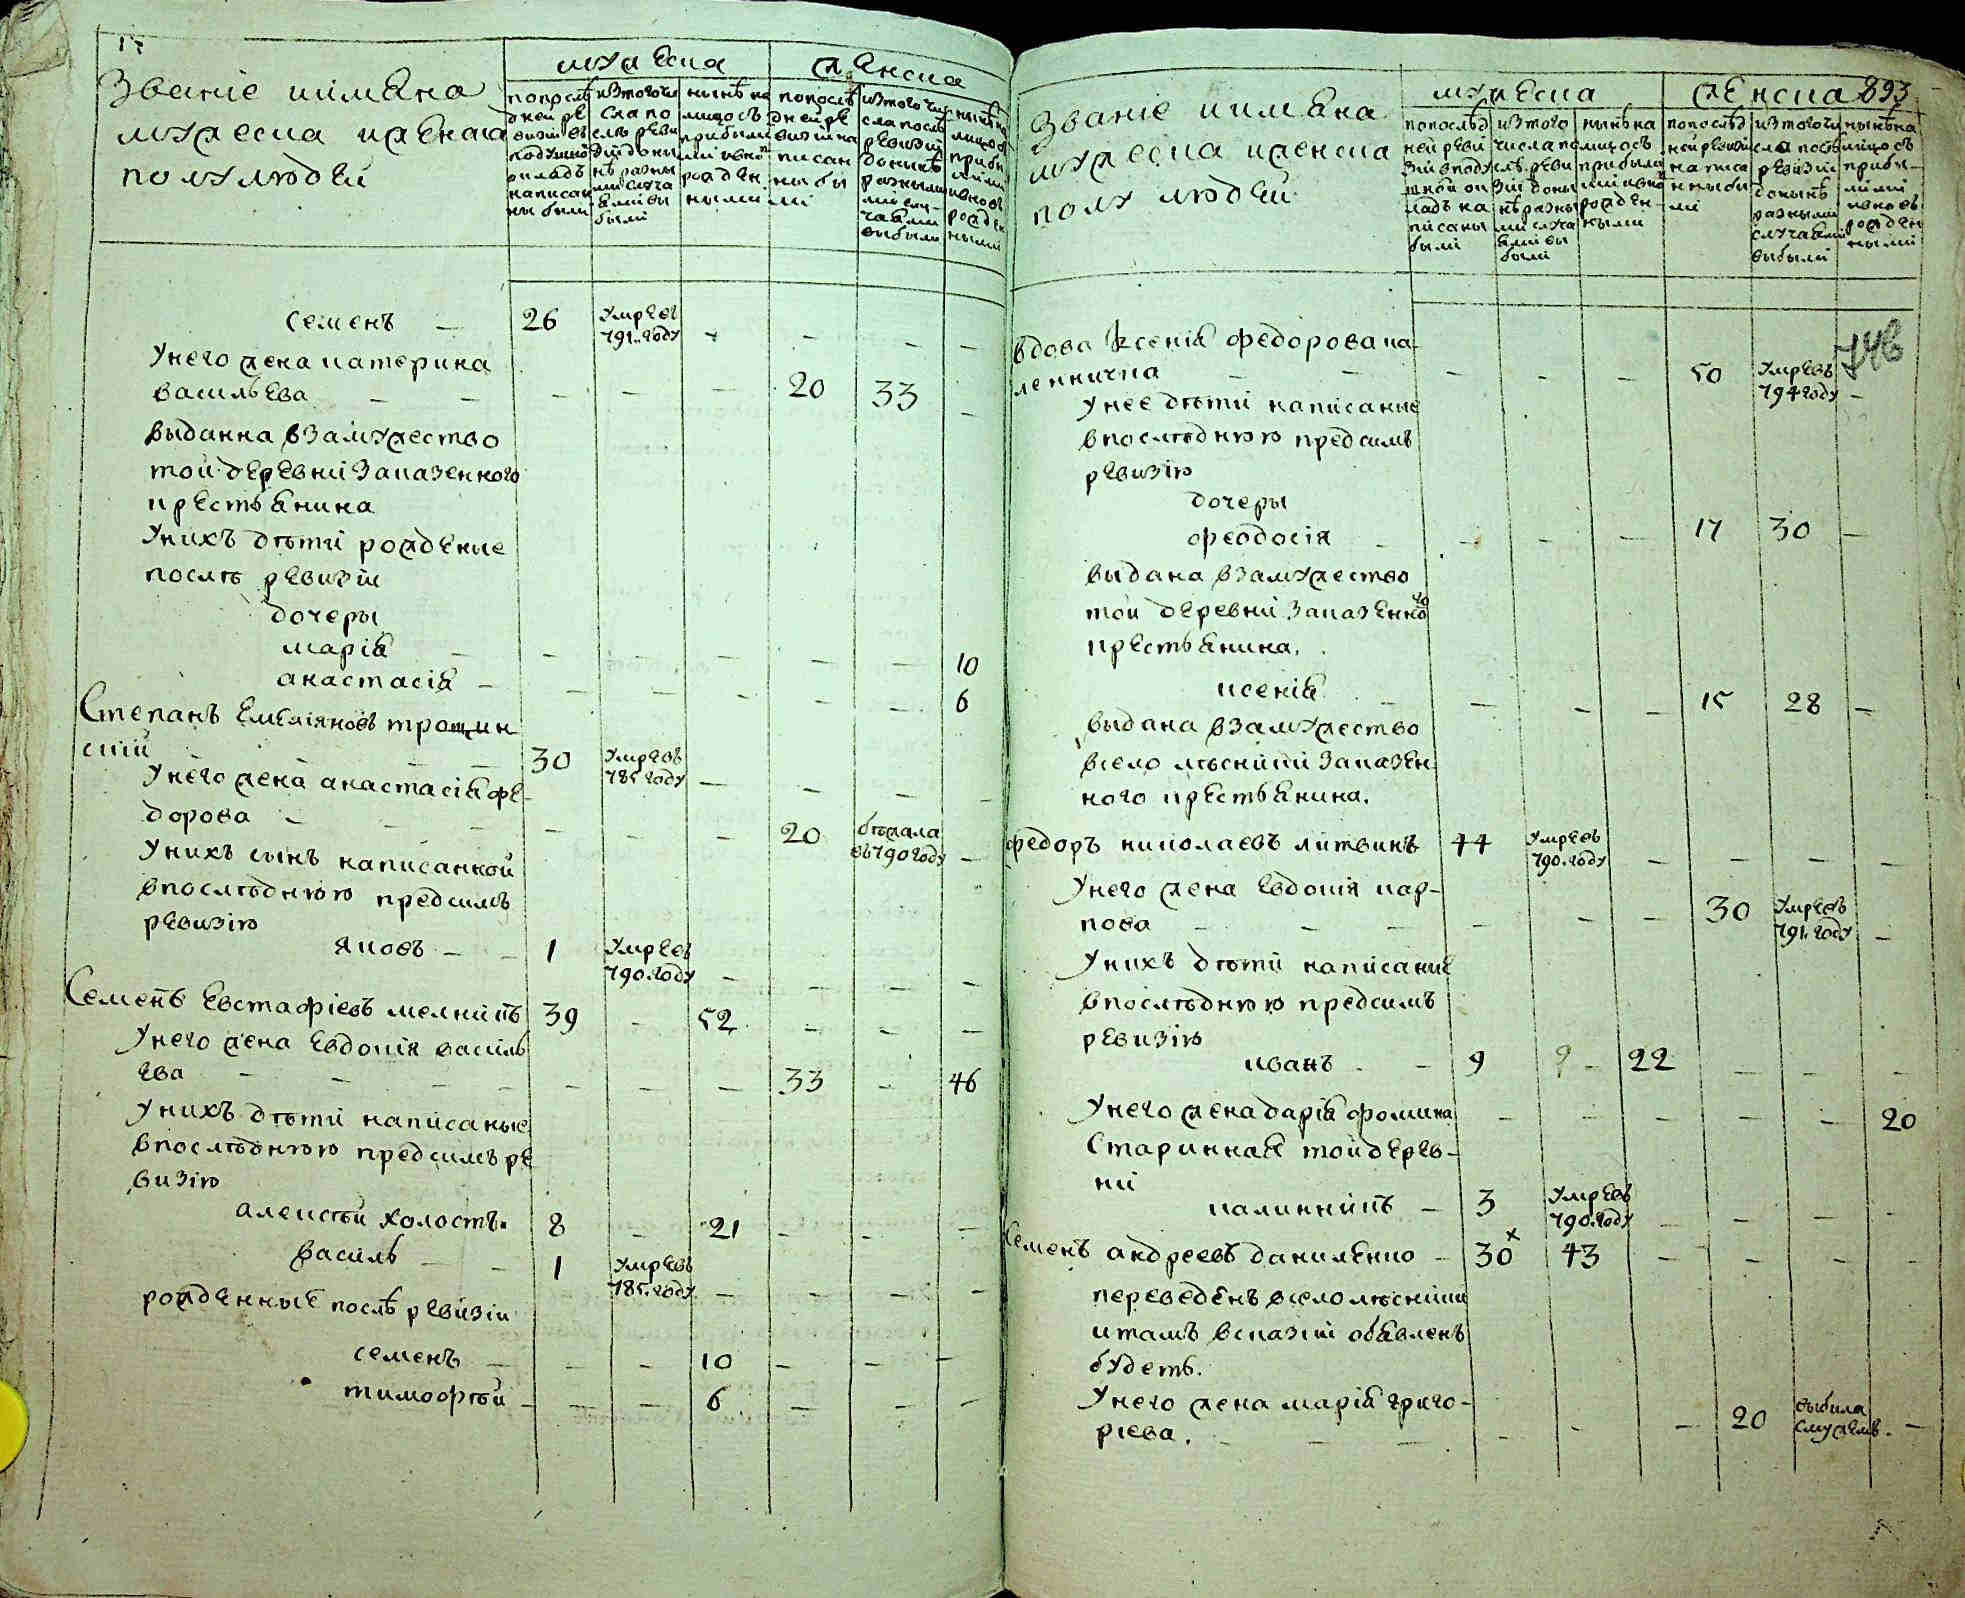 17
Званіе иимяна
мужеска иженска
полулюдей
мужеска
женска
попослѣ
дней ре
визіи въ
подушной
окладъ
написа
ны были
изтогочи
сла по
слѣ реви
зіи доны
нѣ разны
ми случа
ями вы
были
нынѣ на
лицосъ
прибыли
ми ивно
рожден
ными
попослѣ
дней ре
визіи на
писан
ны бы
ли
изтого чи
сла послѣ
ревизіи
донынѣ
разными
слу-
чаями
выбыли
нынѣ на
лицосъ
прибы
лими
ивновь
рожден
ными
семенъ — 26 умре въ
791. году — — — —
Унего жена катерина
васильева — — — — — 20 33 —
выданна взамужество
той деревни заказенного
крестьянина
Унихъ дѣти рожденые
послѣ ревизіи
дочеры
марія — — — — — — 10
анастасія — — — — — — 6
Степанъ емеліяновъ трощин
ский — — 30 умре въ
785. году — — — —
Унего жена анастасія фе-
дорова — — — — — — 20 бѣжала
въ 790 году —
Унихъ сынъ написанной
впослѣднюю предсимъ
ревизію
яковъ — — 1 умре въ
790. году — — — —
Семенъ евстафіевъ мелникъ 39 — 52 — — —
Унего жена евдокія василь
ева — — — — — — — 33 — 46
Унихъ дѣти написаные
впослѣднюю предсимъ ре
визію
алексѣй холостъ. 8 — 21 — — —
василь — — 1 умре въ
785. году — — — —
рожденные послѣ ревизіи
семенъ — — — 10 — — —
тимофѣй — — — 6 — — —
Званіе иимяна
мужеска иженска
полу людей
мужеска
женска 893
попослѣд
ней реви
зіи вподу
шной ок
ладъ на
писаны
были
изтого
числа по
слѣ реви
зіи доны
нѣ разны
ми случа
ями вы
были
нынѣ на
лицосъ
прибыли
ми ивно
рожден-
ными
попослѣд
ней ревизи
на писа
нны бы
ли
изтогочи
сла послѣ
ревизіи
донынѣ
разными
случаями
выбыли
нынѣ на
лицосъ
прибы-
лими
ивновь
рожден
ными
746
вдова ксенія федорова ка-
ленична — — — — — 50 умре въ
794 году —
Унее дѣти написаные
впослѣднюю предсимъ
ревизію
дочеры
феодосія — — — — 17 30 —
выдана взамужество
той деревни заказенно
го
крестьянина.
ксенія — — — — 15 28 —
выдана взамужество
всело лѣсники заказен
ного крестьянина.
федоръ николаевъ литвинъ 44 умре въ
790. году — — — —
Унего жена евдокія кар-
пова — — — — — — 30 умре въ
791. году —
Унихъ дѣти написание
впослѣднюю предсимъ
ревизію
иванъ — — 9 ? — 22 — — —
Унего жена дарія фомина — — — — — 20
Старинная той дерев-
ни
калинникъ — 3 умре въ
790. году — — — —
Семенъ андреевъ даниленко — 30 х 43 — — — —
переведенъ всело лѣсники
итамъ всказки обявленъ
будетъ.
Унего жена марія григо-
ріева. — — — — — — 20 выбила
смужемъ. —